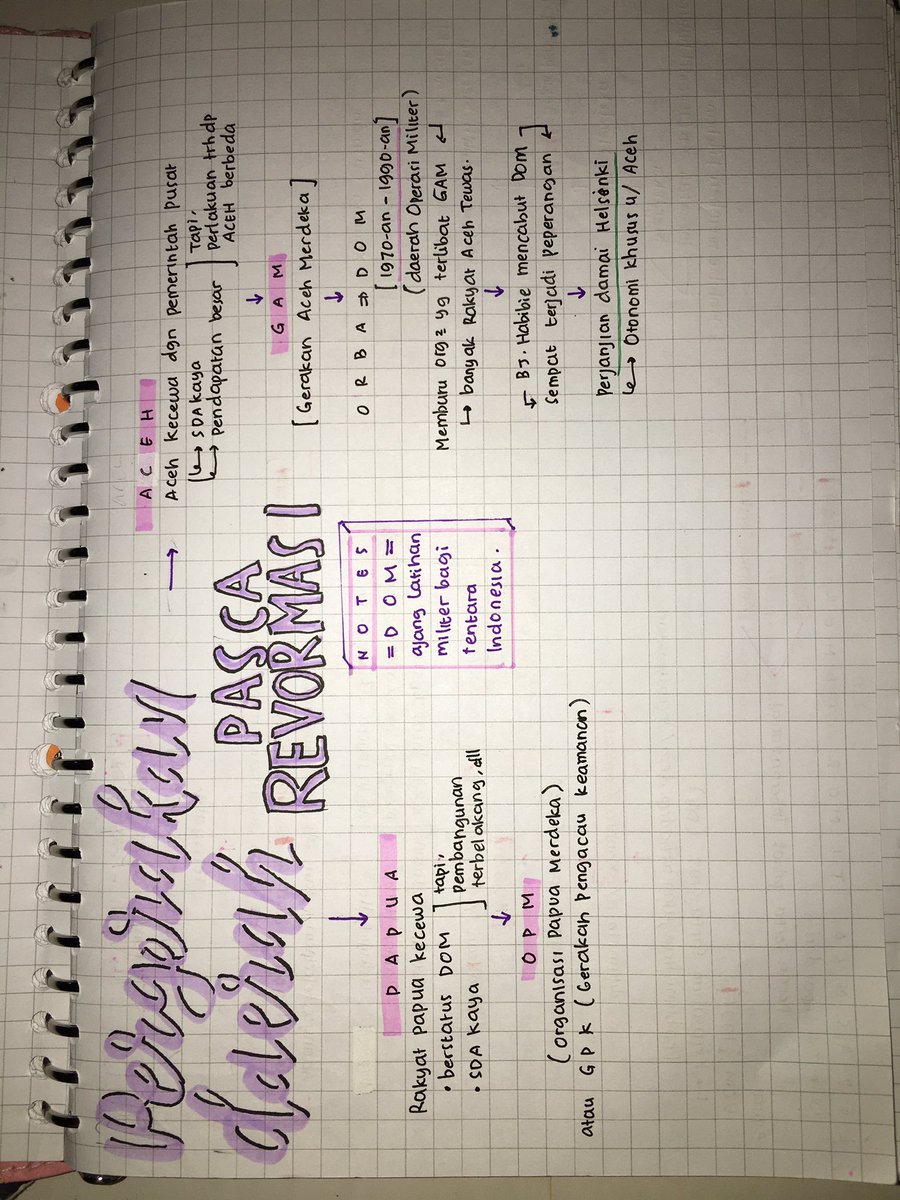 Pergerakan
daerah
PASCA
REVORMASI
→ A C E H
Aceh kecewa dgn pemerintah pusat
↳ SDA kaya ] Tapi,
↳ Pendapatan besar ] Perlakuan trhdp
ACEH berbeda
↓
G A M
[Gerakan Aceh Merdeka]
↓
O R B A ⇒ D O M
[1970-an - 1990-an]
(daerah Operasi Militer)
Memburu org2 yg terlibat GAM ↵
↳ banyak Rakyat Aceh Tewas.
↓
← BJ. Habibie mencabut DOM ]
Sempat terjadi peperangan ↵
↓
Perjanjian damai Helsinki
↳ Otonomi khusus u/ Aceh
N O T E S
= D O M =
ajang latihan
militer bagi
tentara
Indonesia.
↓
P A P U A
Rakyat Papua kecewa
• berstatus DOM ] tapi,
• SDA kaya ] pembangunan
terbelakang, dll
↓
O P M
(Organisasi Papua Merdeka)
atau G P K (Gerakan Pengacau Keamanan)